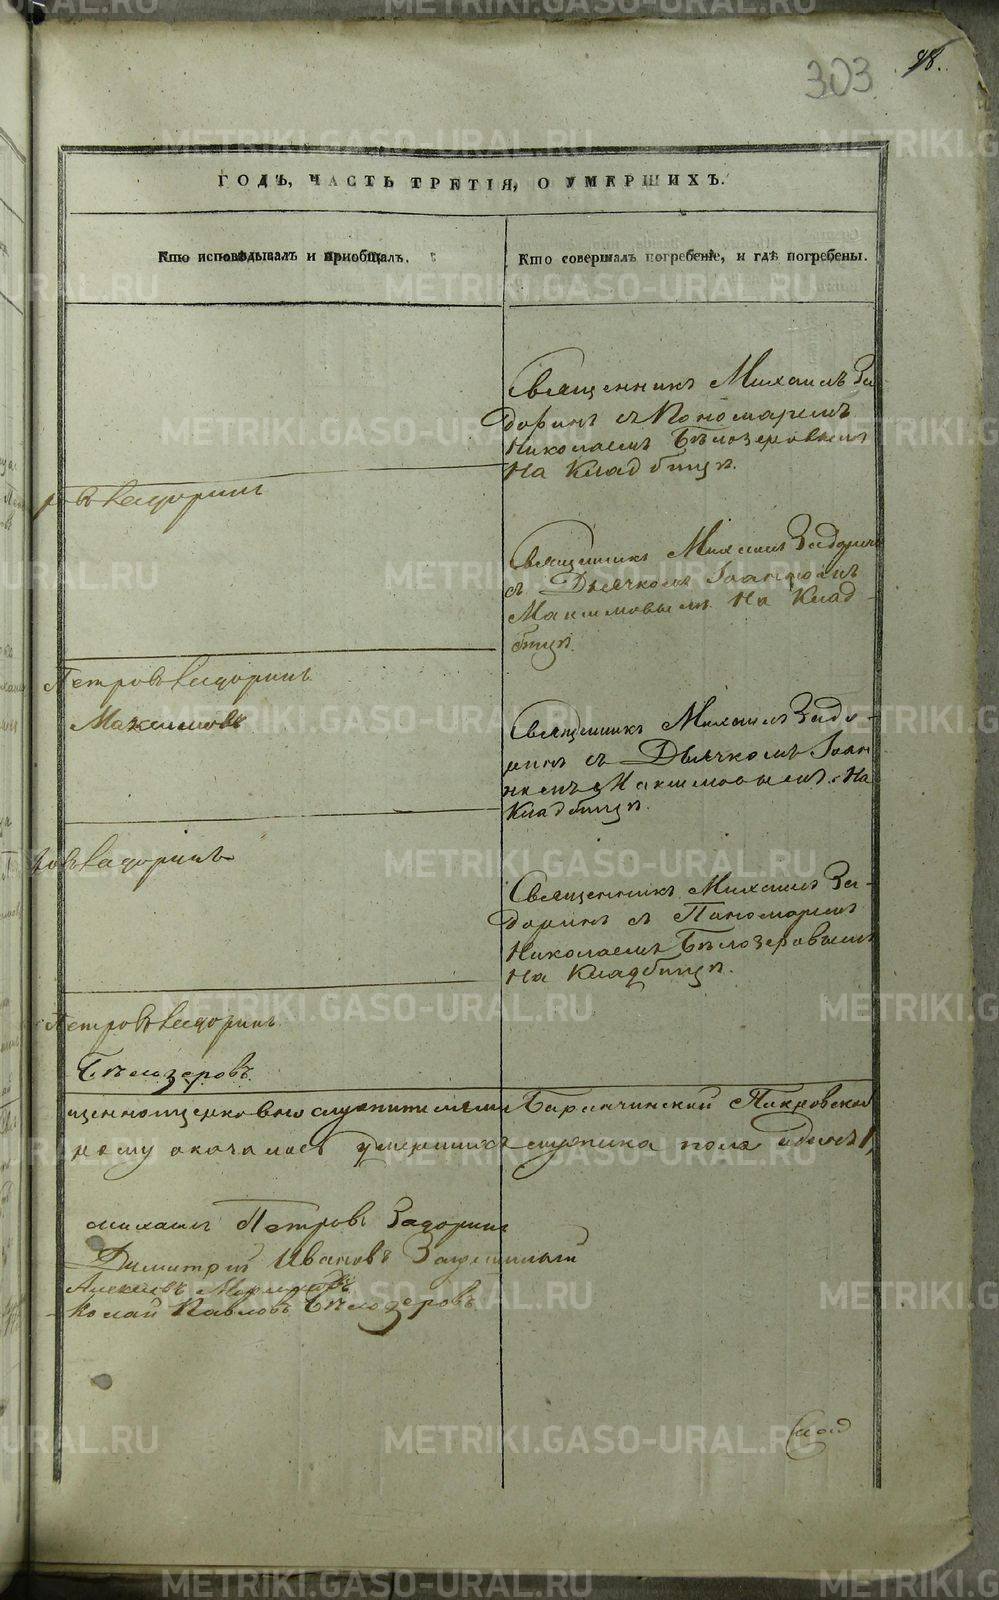 303
98.
ГОДЪ, ЧАСТЬ ТРЕТІЯ, О УМЕРШИХЪ.
Кто исповѣдывалъ и приобщалъ.
Кто совершалъ погребеніе, и гдѣ погребены.
Священникъ Михаилъ За
доринъ съ Пономаремъ
Николаемъ Бѣлозеровымъ
На Кладбищѣ.
ровъ Задоринъ
Священникъ Михаилъ Задорин
съ Дьячкомъ Іоанномъ
Максимовымъ На Клад-
бищѣ.
Петровъ Задоринъ
Максимовъ
Священникъ Михаилъ Задо-
ринъ съ Дьячкомъ Іоан
номъ Максимовымъ На
Кладбищѣ.
ровъ Задоринъ
Священникъ Михаилъ За-
доринъ съ Пономаремъ
Николаемъ Бѣлозеровымъ
На Кладбищѣ.
Петровъ Задоринъ
Бѣлозеровъ
щенноцерковнослужителями Баранчинской Покровской
умершихъ мужеска пола одинъ 1,
Михаилъ Петровъ Задоринъ
Димитрій Ивановъ
Алексѣевъ
колай Павловъ Бѣлозеровъ
METRIKI.GASO-URAL.RU